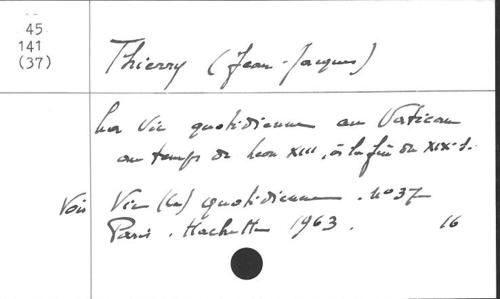 45
141
(37)
Thierry (Jean-Jacques)
La Vie quotidienne au Vatican
au temps de Léon XIII, à la fin du XIXe s.
Voir Vie (La) quotidienne. No 37
Paris. Hachette 1963. 16